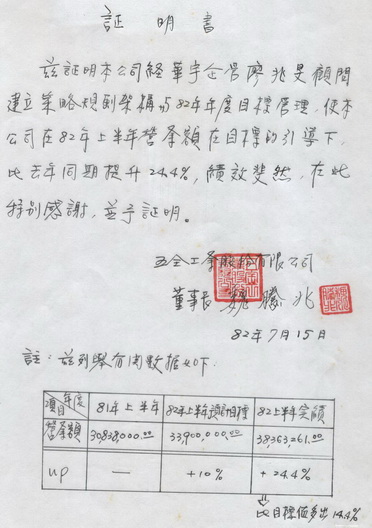 証明書
茲証明本公司經華宇企管廖兆旻顧問
建立策略規劃架構与82年年度目標管理,使本
公司在82年上半年營業額在目標的引導下,
比去年同期提升24.4%,績效斐然,在此
特別感謝,並予証明。
五全工業股份有限公司
董事長 魏騰兆
82年7月15日
註:茲列舉有関数據如下:
年度 項目 81年上半年 82年上半年預定目標 82上半年实績
營業額 30,838,000.00 33,900,000.00 38,363,261.00
up — +10% +24.4%
比目標值多出14.4%